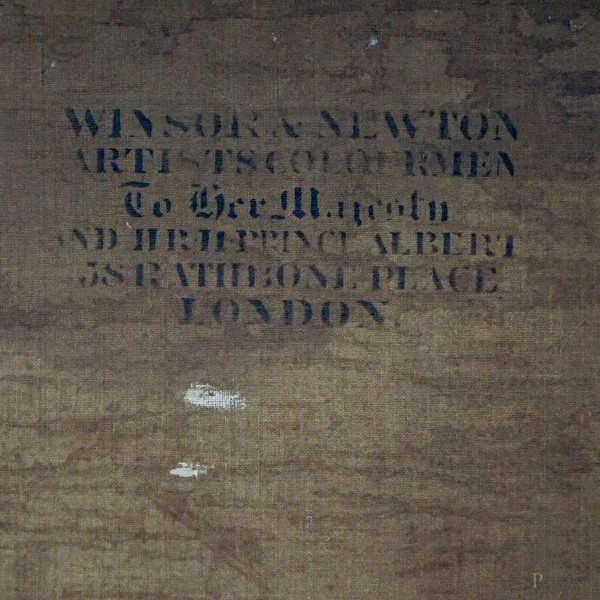 WINSOR & NEWTON
ARTISTS COLOURMEN
To Her Majesty
AND H.R.H. PRINCE ALBERT
38 RATHBONE PLACE
LONDON.